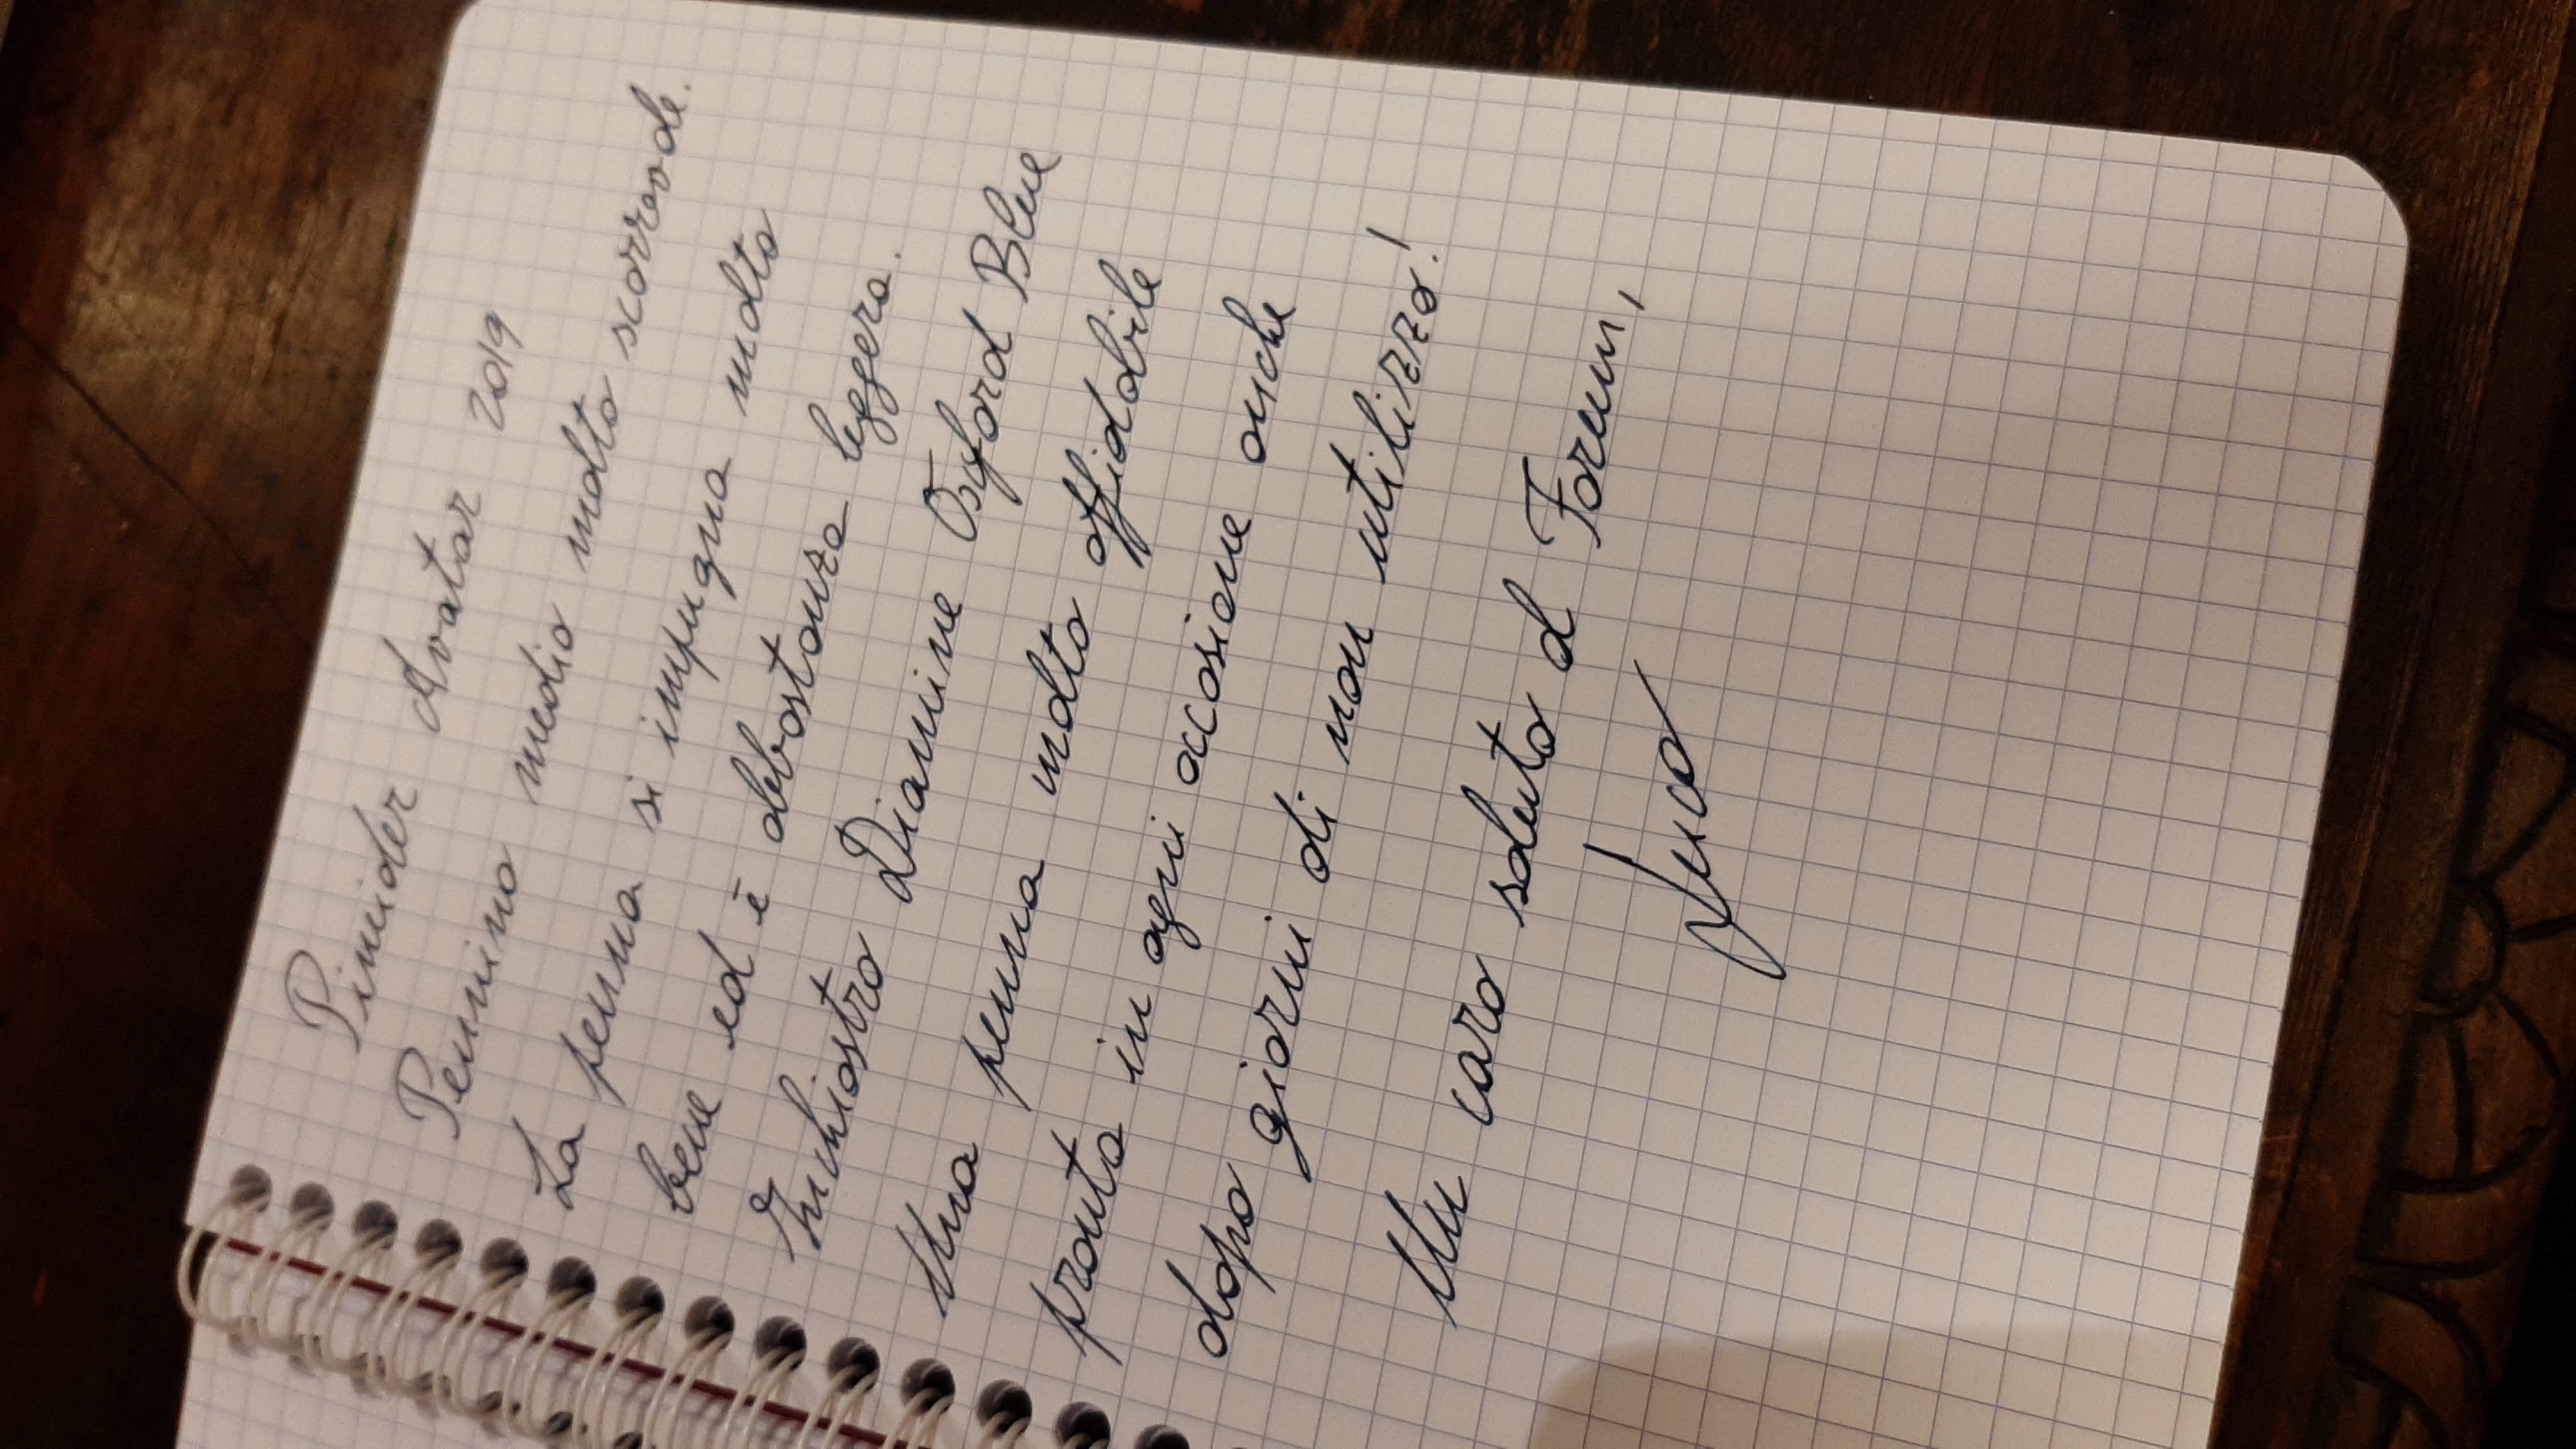 Pineider Avatar 2019
Pennino medio molto scorrevole.
La penna si impugna molto
bene ed è abbastanza leggera.
Inchiostro Diamine Oxford Blue
Una penna molto affidabile
pronta in ogni occasione anche
dopo giorni di non utilizzo!
Un caro saluto al Forum,
Luca